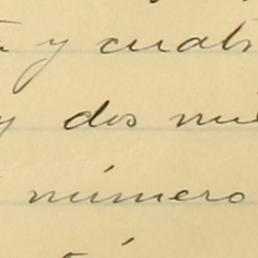 y cuat
y dos mil
número